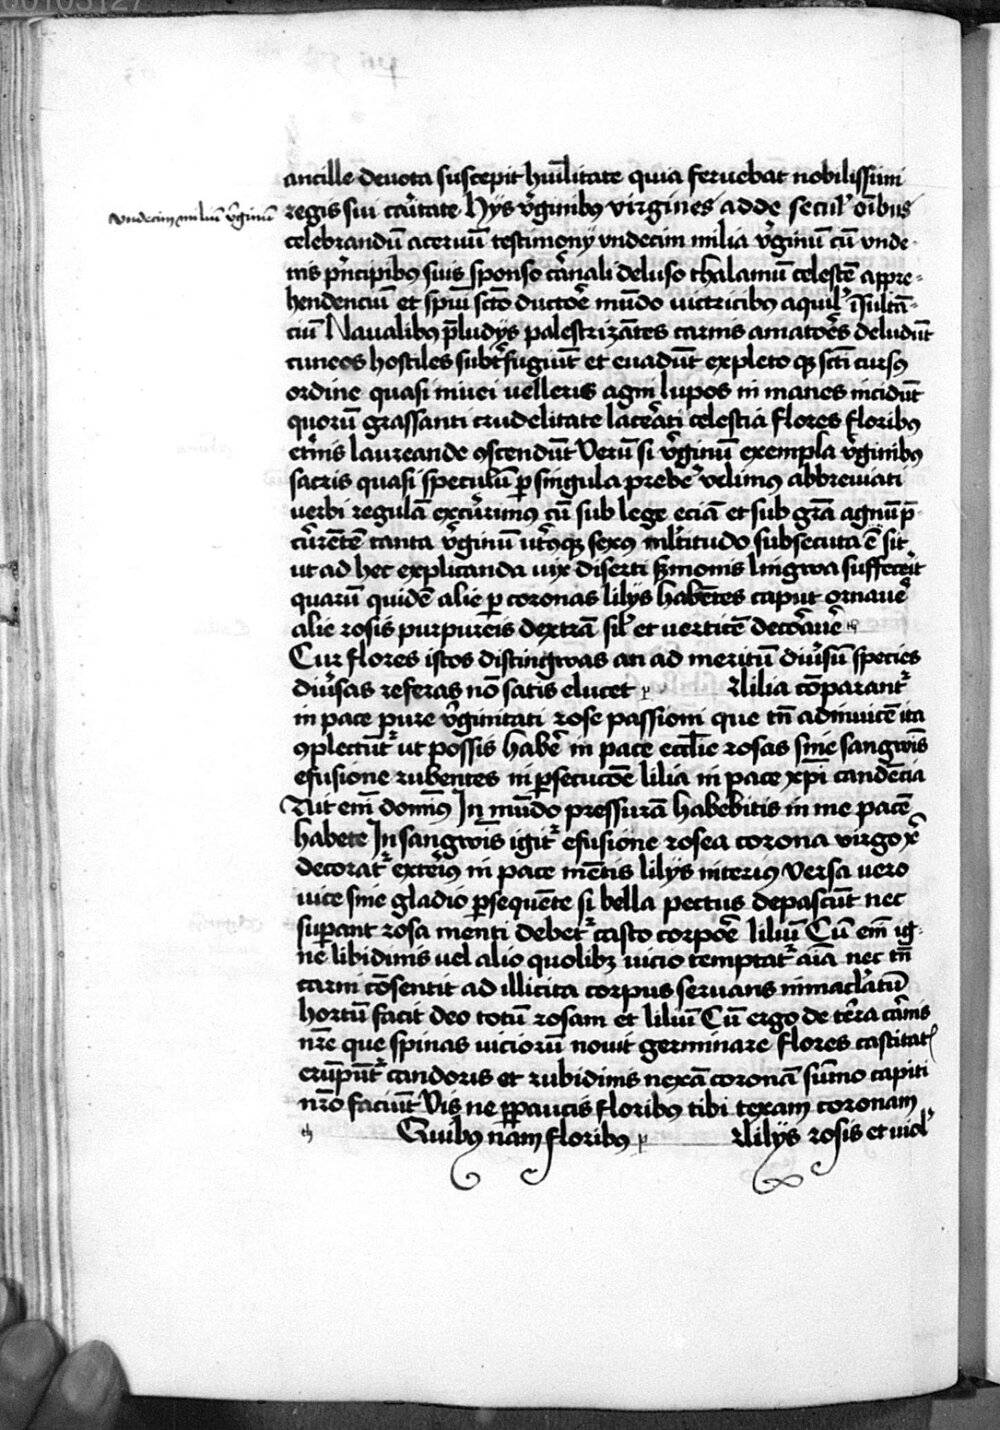 ancille deuota suscepit hu̅ilitate quia feruebat nobilissimi
vndecim miliu̅ v̓ginu̅
regis sui ca̓itate Hys v̓ginibꝰ virgines adde secul̓ oi̅bus
celebrandu̅ aceruu̅ testimony vndecim milia v̓ginu̅ cu̅ vnde
nis p̓ncipibꝰ suis sponso ca̓nali deluso thalamu̅ celeste̅ appre-
hendenciu̅ et spu̅ sc̅o ductoe̓ mu̅do victricibꝰ aquil̓ i̅sulta̅-
ciu̅ Naualibꝰ p̅ludys palestriza̅tes carnis amatoe̓s deludu̅t
cuneos hostiles subt̓fugiu̅t et euadu̅t expleto qꝫ sc̅i cursꝰ
ordine quasi niuei velleris agni lupos in manes incidu̅t
quoru̅ grassanti crudelitate lace̓ati celestia flores floribꝰ
et̓nis laureande ꝯscendu̅t Veru̅ si v̓ginu̅ exempla v̓ginibꝰ
sacris quasi speculu̅ ꝑ singula prebe̓ velimus abbreuiati
verbi regula̅ excu̓rimꝰ cu̅ sub lege ecia̅ et sub gr̅a agnu̅ p̅-
cu̓re̅te̅ tanta v̓ginu̅ vt̓usqꝫ sexꝰ ml̓titudo subsecuta e̅ sit
ut ad hec explicanda uix diserti s̓monis lingwa suffecerit
quaru̅ quide̅ alie ꝑ coronas lilys habe̅tes caput ornaue̓
alie rosis purpureis dextra̅ sil̓ et vertice̅ deco̓aue̓
Cur flores istos distingwas an ad meritu̅ diu̓su̅ species
diu̓sas referas no̅ satis elucet p̓ Rlilia co̅parant᷑
in pace pure v̓ginitati rose passioni que tn̅ adinuice̅ ita
ꝯplectu̅t᷑ ut possis habe̓ in pace eccl̅ie rosas sine sangwi̅s
efusione rubentes in ꝑsecuco̅e lilia in pace xp̅i cande̅cia
Vt em̅ domi̅ꝰ In mu̅do pressura̅ habebitis in me pace̅
habete In sangwi̅s igit᷑ efusione rosea corona virgo x̓
decorat᷑ exte̓iꝰ in pace me̅tis lilys interiꝰ Versa uero
uice sine gladio ꝑseque̅te si bella pectus depascu̅t nec
suꝑant rosa menti debet᷑ casto corpoe̓ liliu̅ Cu̅ em̅ ig-
ne libidinis uel alio quolibꝫ uicio temptat᷑ ai̅a nec tn̅
carni co̅sentit ad illicita corpus seruans inmacl̓atu̅
hortu̅ facit deo totu̅ rosam et liliu̅ Cu̅ ergo de te̓ra ca̓nis
nr̅e que spinas uicioru̅ nouit germinare flores castitat̓
eru̅pu̅t᷑ candoris et rubidinis nexa̅ corona̅ su̅mo capiti
nr̅o faciu̅t Vis ne ꝑpaucis floribus tibi texam coronam
Quibꝰ na̅m floribꝰ p̓ Rlilys rosis et uiol̓